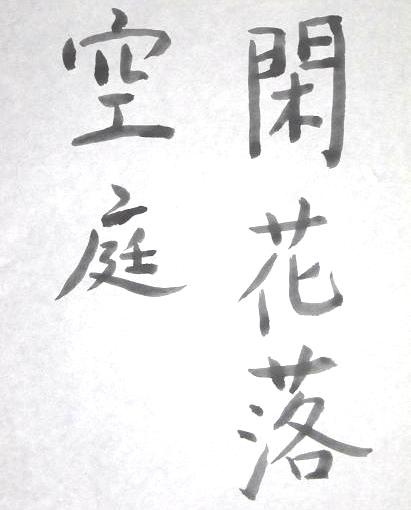 閑花落
空庭